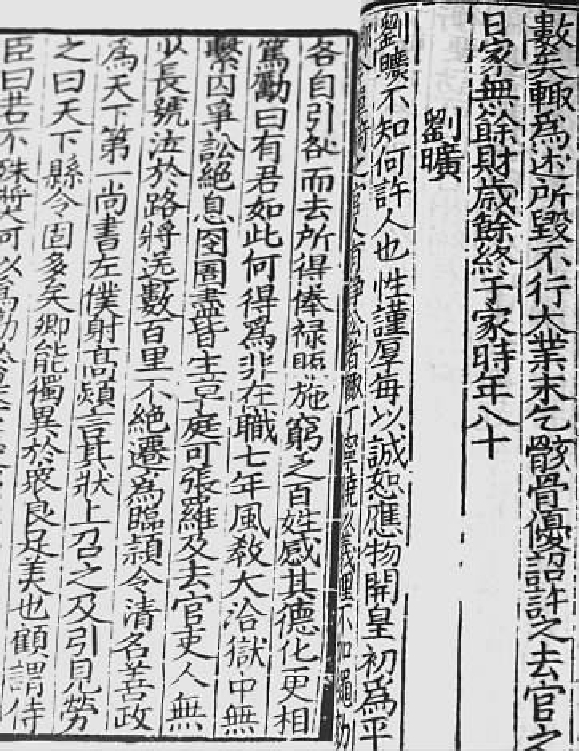 數矣輒為述所毀不行大業末乞骸骨優詔許之去官之
日家無餘財歲餘終于家時年八十
劉曠
劉曠不知何許人也性謹厚每以誠恕應物開皇初為平
人有諍訟者輒丁寧曉以義理不加繩劾
各自引咎而去所得俸祿賑施窮乏百姓感其德化更相
篤勵曰有君如此何得為非在職七年風教大洽獄中無
繫囚爭訟絕息囹圄盡皆生草庭可張羅及去官吏人無
少長號泣於路將送數百里不絕遷為臨潁令清名善政
為天下第一尚書左僕射高熲言其狀上召之及引見勞
之曰天下縣令固多矣卿能獨異於眾良足美也顧謂侍
臣曰若不殊獎何以為勸